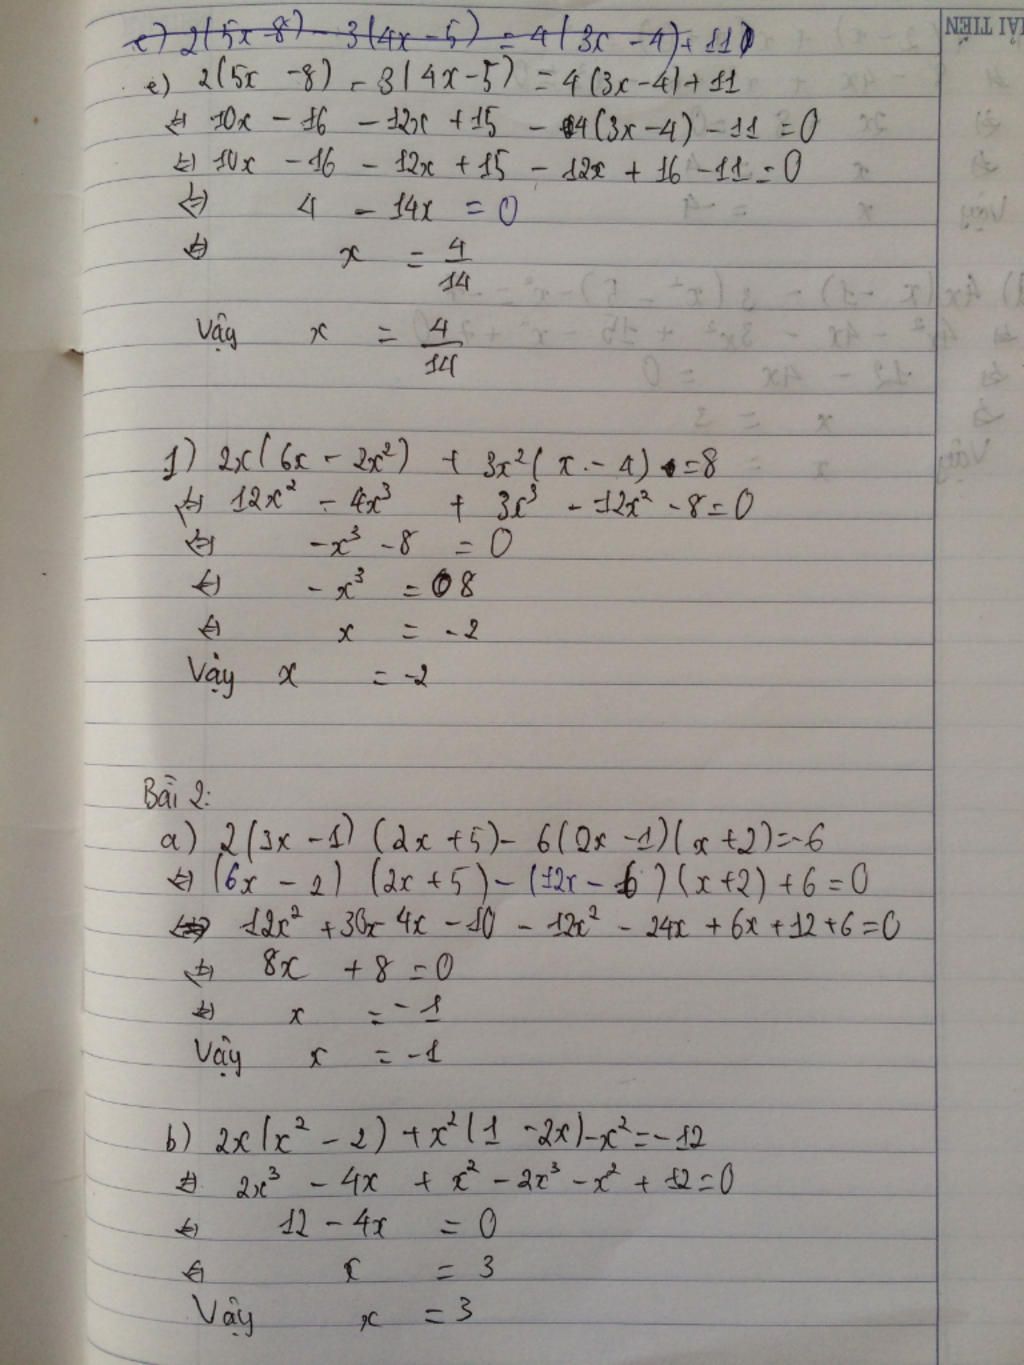 e) 2(5x-8) - 3(4x-5) = 4(3x-4)+11
e) 2(5x -8) - 3(4x-5) = 4(3x-4)+11
⇔ 10x - 16 - 12x + 15 - 4(3x-4) - 11 = 0
⇔ 10x - 16 - 12x + 15 - 12x + 16 - 11 = 0
⇔ 4 - 14x = 0
⇔ x = 4/14
Vậy x = 4/14
f) 2x(6x - 2x²) + 3x²(x - 4) = 8
⇔ 12x² - 4x³ + 3x³ - 12x² - 8 = 0
⇔ -x³ - 8 = 0
⇔ -x³ = 8
⇔ x = -2
Vậy x = -2
Bài 2:
a) 2(3x-1)(2x+5) - 6(2x-1)(x+2) = -6
⇔ (6x - 2)(2x+5) - (12x - 6)(x+2) + 6 = 0
⇔ 12x² + 30x - 4x - 10 - 12x² - 24x + 6x + 12 + 6 = 0
⇔ 8x + 8 = 0
⇔ x = -1
Vậy x = -1
b) 2x(x² - 2) + x²(1 - 2x) - x² = -12
⇔ 2x³ - 4x + x² - 2x³ - x² + 12 = 0
⇔ 12 - 4x = 0
⇔ x = 3
Vậy x = 3